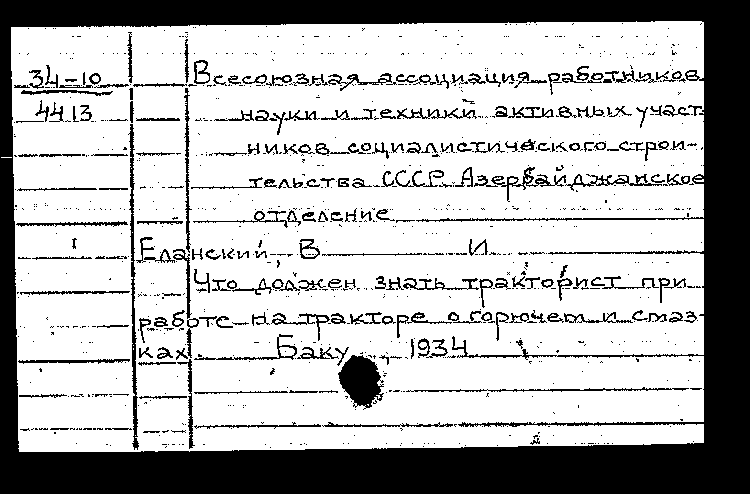 34-10
4413
Всесоюзная ассоциация работников
науки и техники активных участ-
ников социалистического строи-
тельства СССР. Азербайджанское
отделение
Еланский, В И
Что должен знать тракторист при
работе на тракторе о горючем и смаз-
ках. Баку, 1934